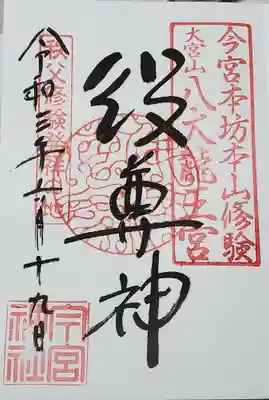 今宮本坊本山修験
大宮山八大龍王宮
役尊神
秩父修験発祥地
令和三年六月十九日
今宮神社